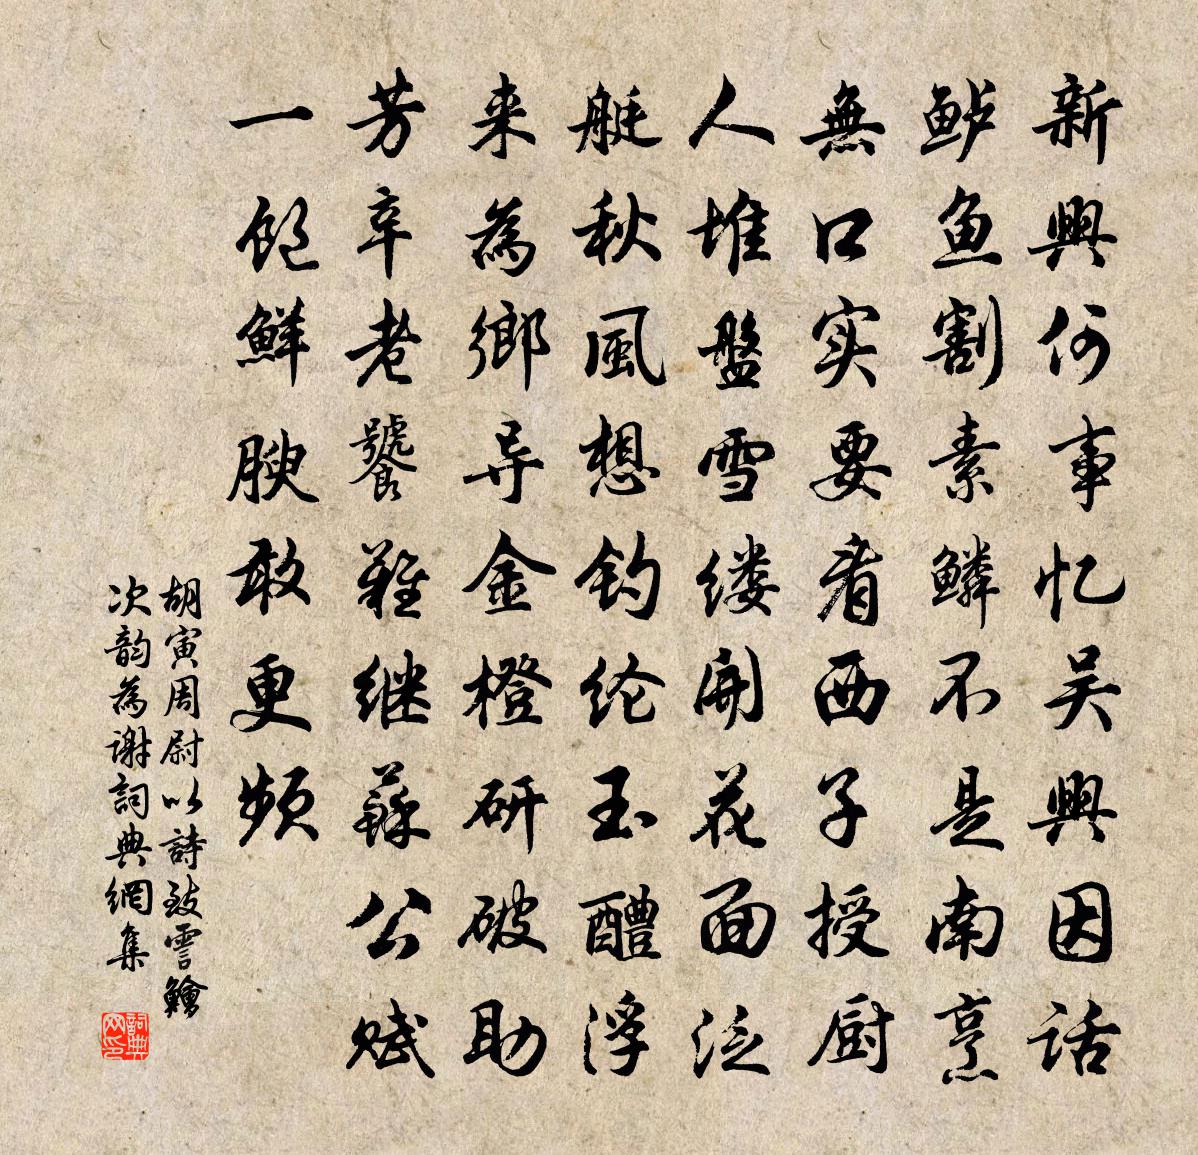 新興何事忆吴興因话
鲈鱼割素鳞不是南烹
無口实要看西子授厨
人堆盤雪缕開花面泛
艇秋風想钓纶玉醴浮
来為鄉导金橙研破助
芳辛老饕難继蘇公赋
一饱鮮腴敢更频
胡寅周尉以詩致霅鱠
次韵為谢詞典網集
詞典
网印